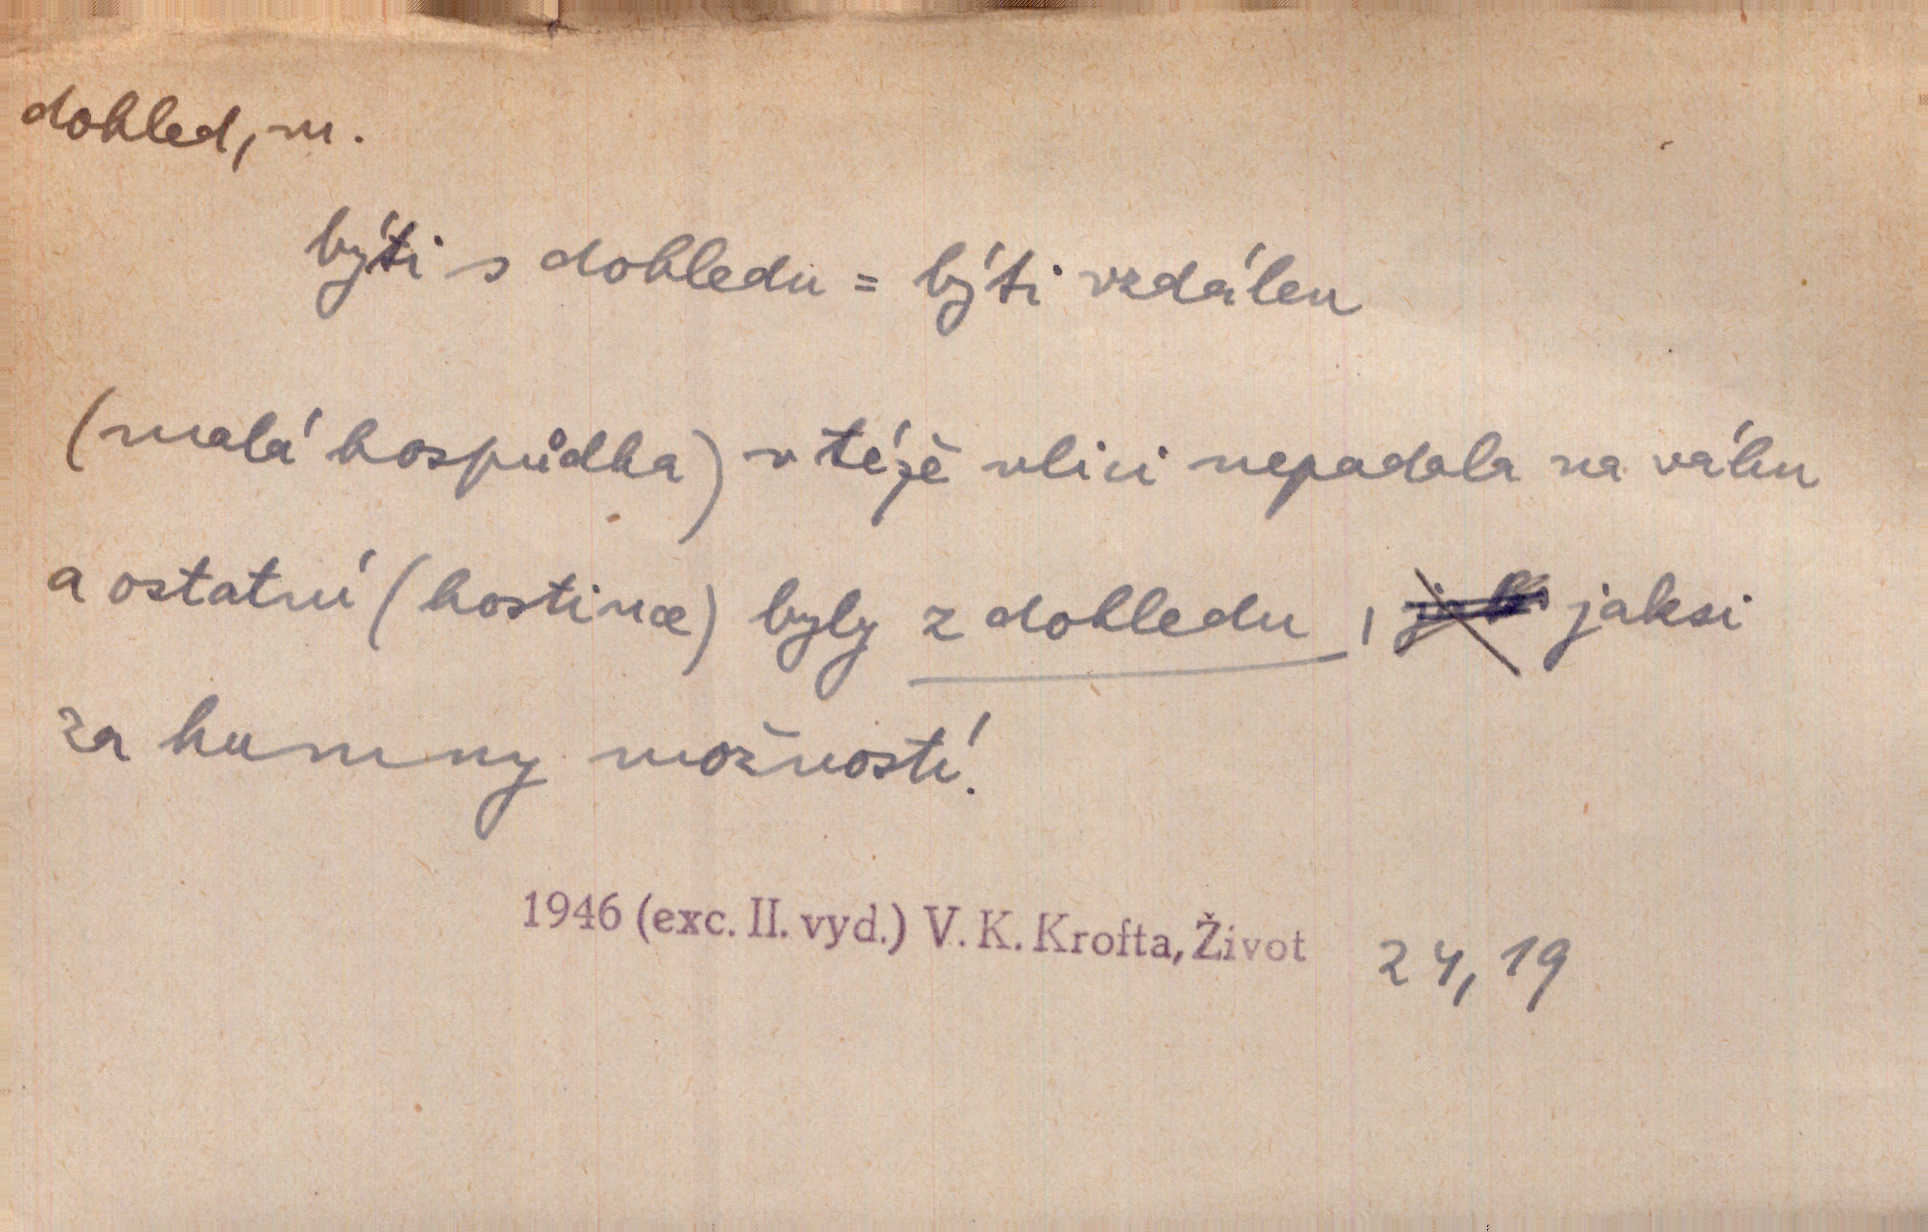 dohled, m.
býti s dohledu = býti vzdálen
(malá hospůdka) v téže ulici nepadala na váhu
a ostatní (hostince) byly z dohledu, jaksi
za humny možností.
1946 (exc. II. vyd.) V. K. Krofta, Život 24, 19